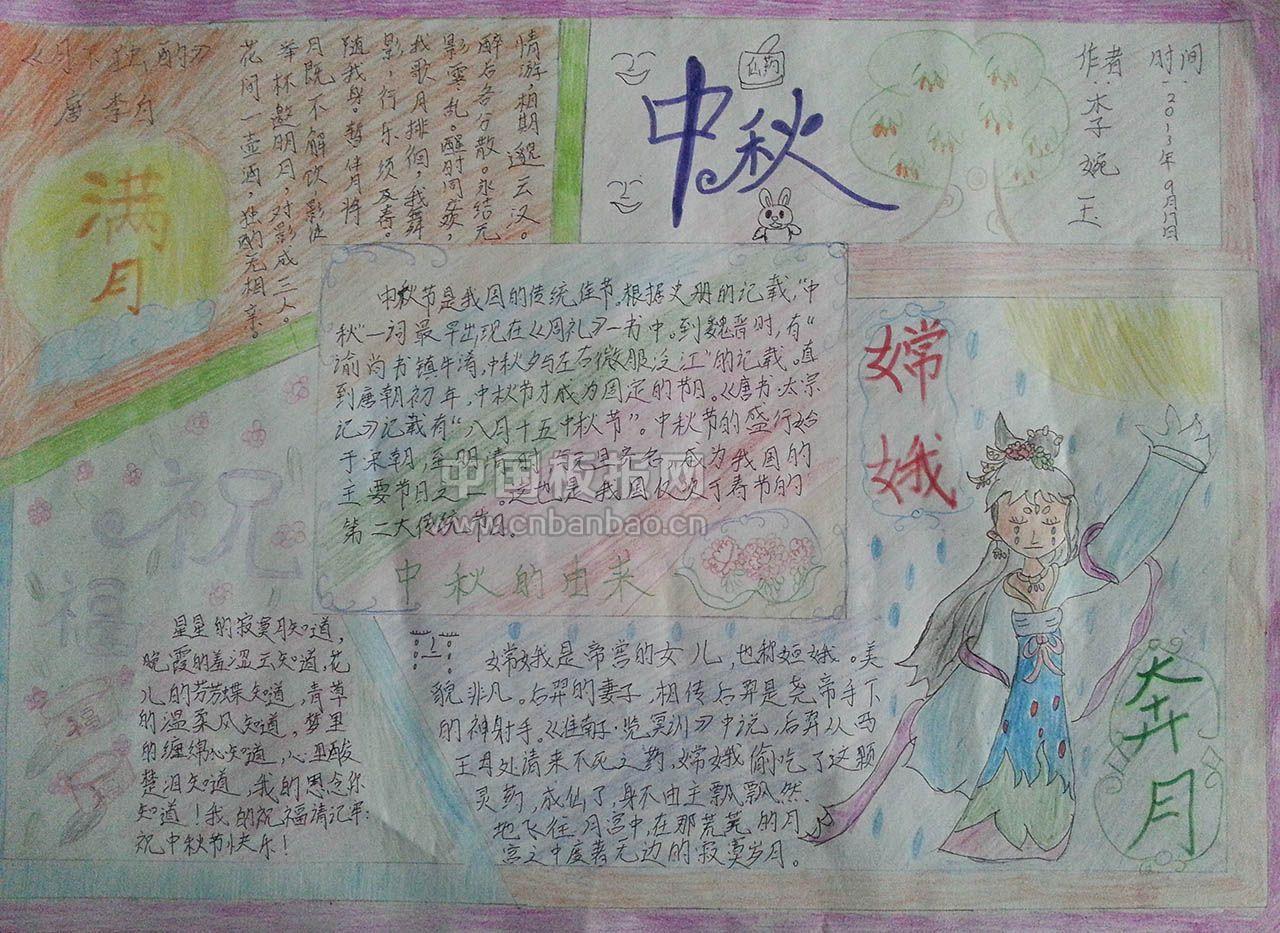 《月下独酌》
唐 李白
花间一壶酒,独酌无相亲。
举杯邀明月,对影成三人。
月既不解饮,影徒
随我身。暂伴月将
影,行乐须及春。
我歌月排徊,我舞
影零乱。醒时同交欢,
醉后各分散。永结无
情游,相期邈云汉。
满
月
仙药
中秋
作者:李婉玉
时间:2013年9月17日
中秋节是我国的传统佳节。根据史册的记载,“中
秋”一词最早出现在《周礼》一书中。到魏晋时,有“
谕尚书镇牛渚,中秋夕与左右微服泛江”的记载。直
到唐朝初年,中秋节才成为固定的节日。《唐书·太宗
记》记载有“八月十五中秋节”。中秋节的盛行始
于宋朝,至明清时,
成为我国的
主要节日之一。这也是我国仅次于春节的
第二大传统节日。
中秋的由来
中国板报网
www.cnbanbao.cn
嫦
娥
奔
月
祝
福
福
星星的寂寞月知道,
晚霞的羞涩云知道,花
儿的芳芳蝶知道,青草
的温柔风知道,梦里
的缠绵心知道,心里酸
楚泪知道,我的思念你
知道!我的祝福请记牢:
祝中秋节快乐!
嫦娥是帝喾的女儿,也称姮娥。美
貌非凡。后羿的妻子,相传后羿是尧帝手下
的神射手。《淮南子·览冥训》中说,后羿从西
王母处请来不死之药,嫦娥偷吃了这颗
灵药,成仙了,身不由主飘飘然
地飞往月宫中,在那荒芜的月
宫之中度著无边的寂寞岁月。